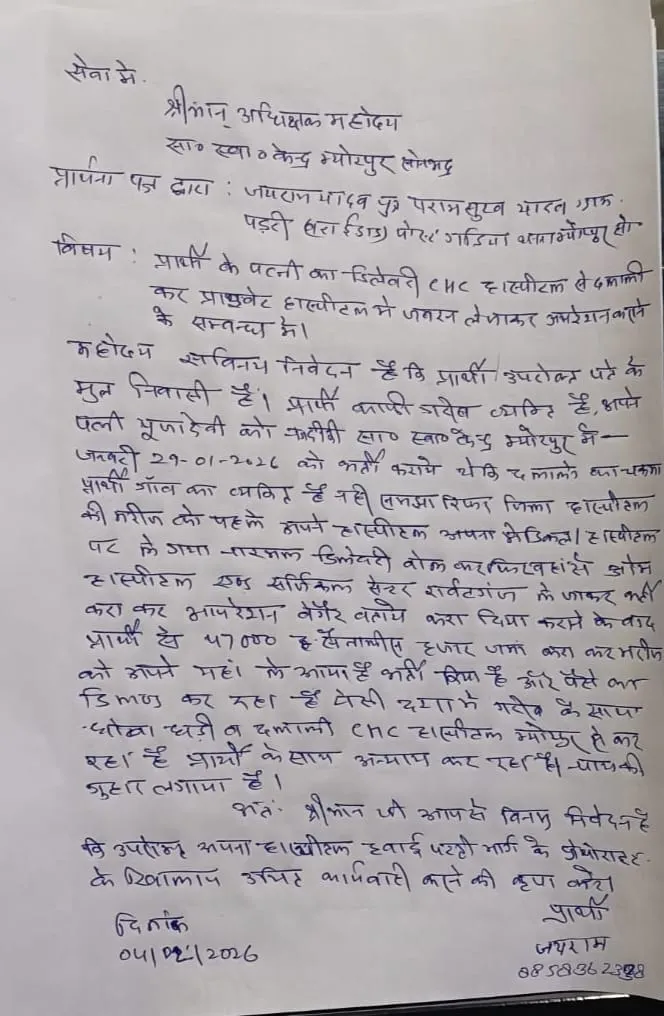 सेवा मे.
श्रीमान् अधिक्षक महोदय
सा० स्वा० केन्द्र म्योरपुर सोनभद्र
प्रार्थना पत्र द्वारा : जयराम यादव पुत्र परामसुख यादव ग्राम.
पड़री पोस्ट गडिया थाना म्योरपुर सो
विषय : प्रार्थी के पत्नी का डिलेवरी CHC हास्पीटल से दलाली
कर प्राइवेट हास्पीटल मे जबरन लेजाकर अपरेशन कराने
के सम्बन्ध मे।
महोदय सविनय निवेदन है कि प्रार्थी उपरोक्त पते के
मुल निवासी है। प्रार्थी काफी गरीब व्यक्ति है, अपने
पत्नी पूजादेवी को सा० स्वा० केन्द्र म्योरपुर मे
जनवरी 29-01-2026 को भर्ती कराये थे कि दलालो
प्रार्थी गॉव का व्यक्ति है नही समझा जिला हास्पीटल
की मरीज को पहले अपने हास्पीटल अपना मेडिकल। हास्पीटल
पर ले गया नारमल डिलेवरी बोल कर फिर वहां से ओम
हास्पीटल एण्ड सर्जिकल सेन्टर रार्वटगंज ले जाकर भर्ती
करा कर आपरेशन बेगैर बताये करा दिया कराने के बाद
प्रार्थी से 47000 रु. सैतालीस हजार जमा करा कर मरीज
को अपने यहां ले आया है भर्ती किया है और पैसे का
डिमाण्ड कर रहा है ऐसी दशा मे गरीब के साथ
धोखा धड़ी व दलाली CHC हास्पीटल म्योरपुर से कर
रहा है प्रार्थी के साथ अन्याय कर रहा है।
गुहार लगाया है।
अतः श्रीमान जी आपसे विनम्र निवेदन है
कि उपरोक्त अपना हास्पीटल हवाई पट्टी मार्ग के
के खिलाफ उचित कार्यवाही करने की कृपा करे।
प्रार्थी
दिनांक
जयराम
04/02/2026